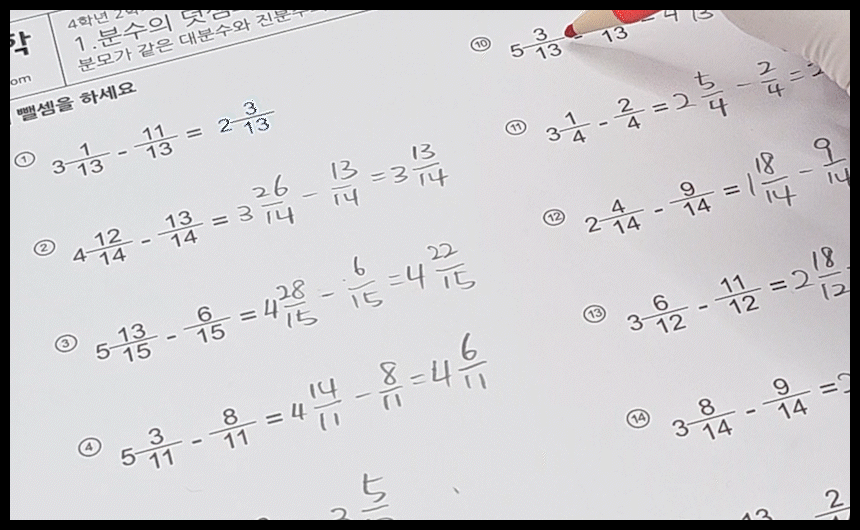 학
4학년 2학
1.분수의 덧셈
분모가 같은 대분수와 진분수
om
뺄셈을 하세요
① 3 1/13 - 11/13 = 2 3/13
② 4 12/14 - 13/14 = 3 26/14 - 13/14 = 3 13/14
③ 5 13/15 - 6/15 = 4 28/15 - 6/15 = 4 22/15
④ 5 3/11 - 8/11 = 4 14/11 - 8/11 = 4 6/11
5
⑩ 5 3/13 - 13 = 4 13
⑪ 3 1/4 - 2/4 = 2 5/4 - 2/4 =
⑫ 2 4/14 - 9/14 = 1 18/14 - 9/14
⑬ 3 6/12 - 11/12 = 2 18/12
⑭ 3 8/14 - 9/14 =
13 2